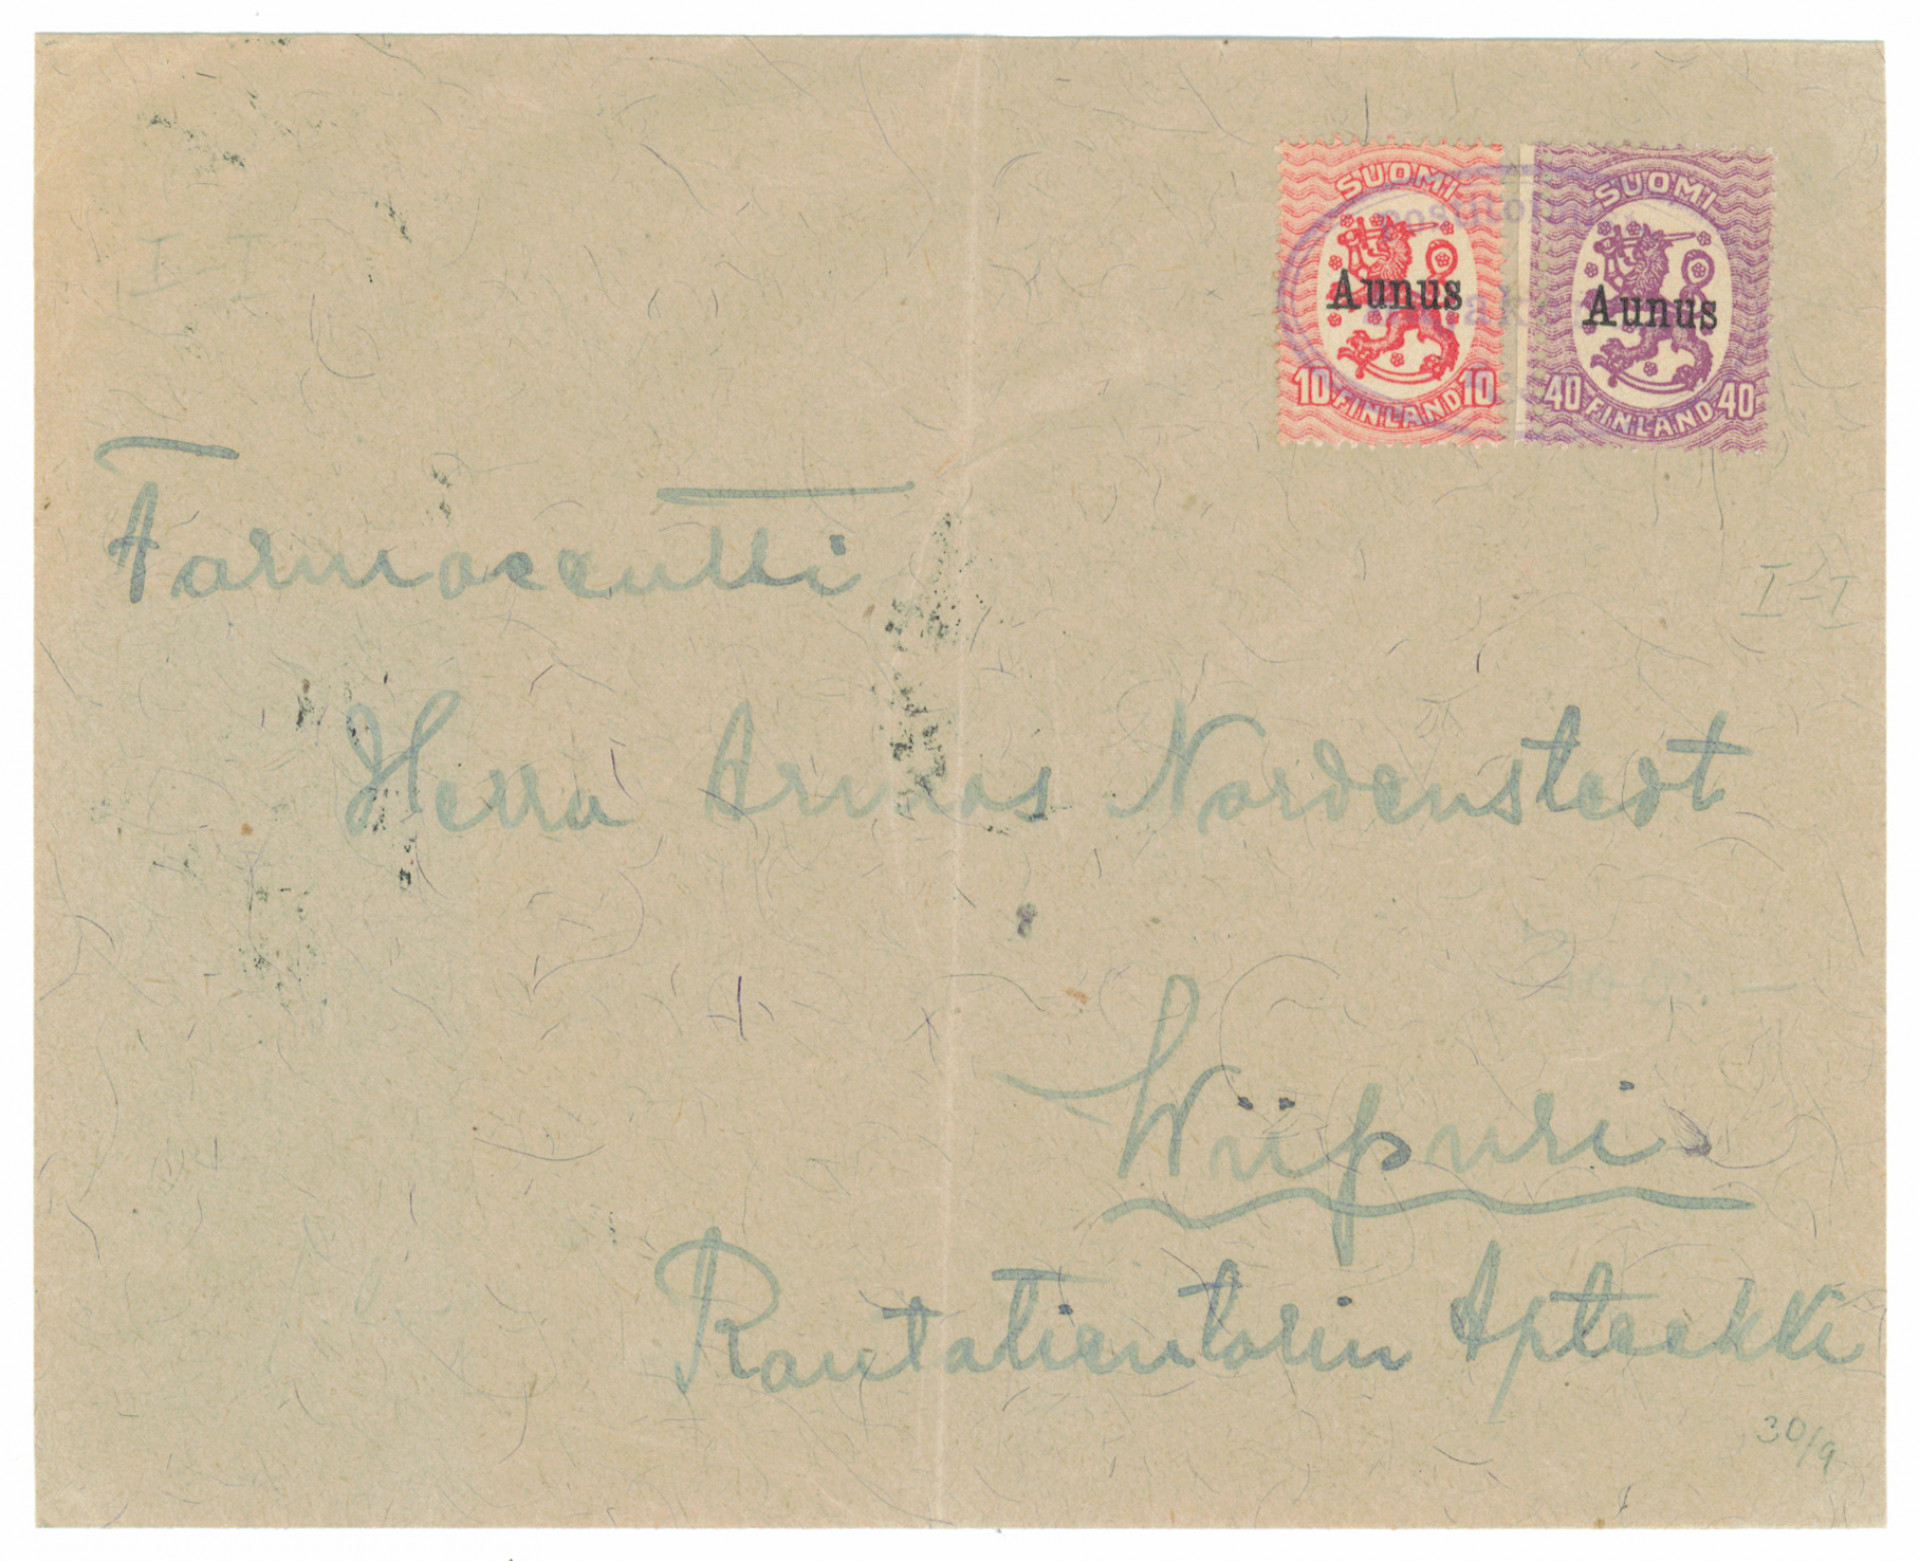 SUOMI
Aunus
10 FINLAND 10
SUOMI
Aunus
40 FINLAND 40
I-I
Farmaceutti
I-I
Herra Armas Nordenstedt
Wiipuri.
Rautatientorin Apteekki
30/9